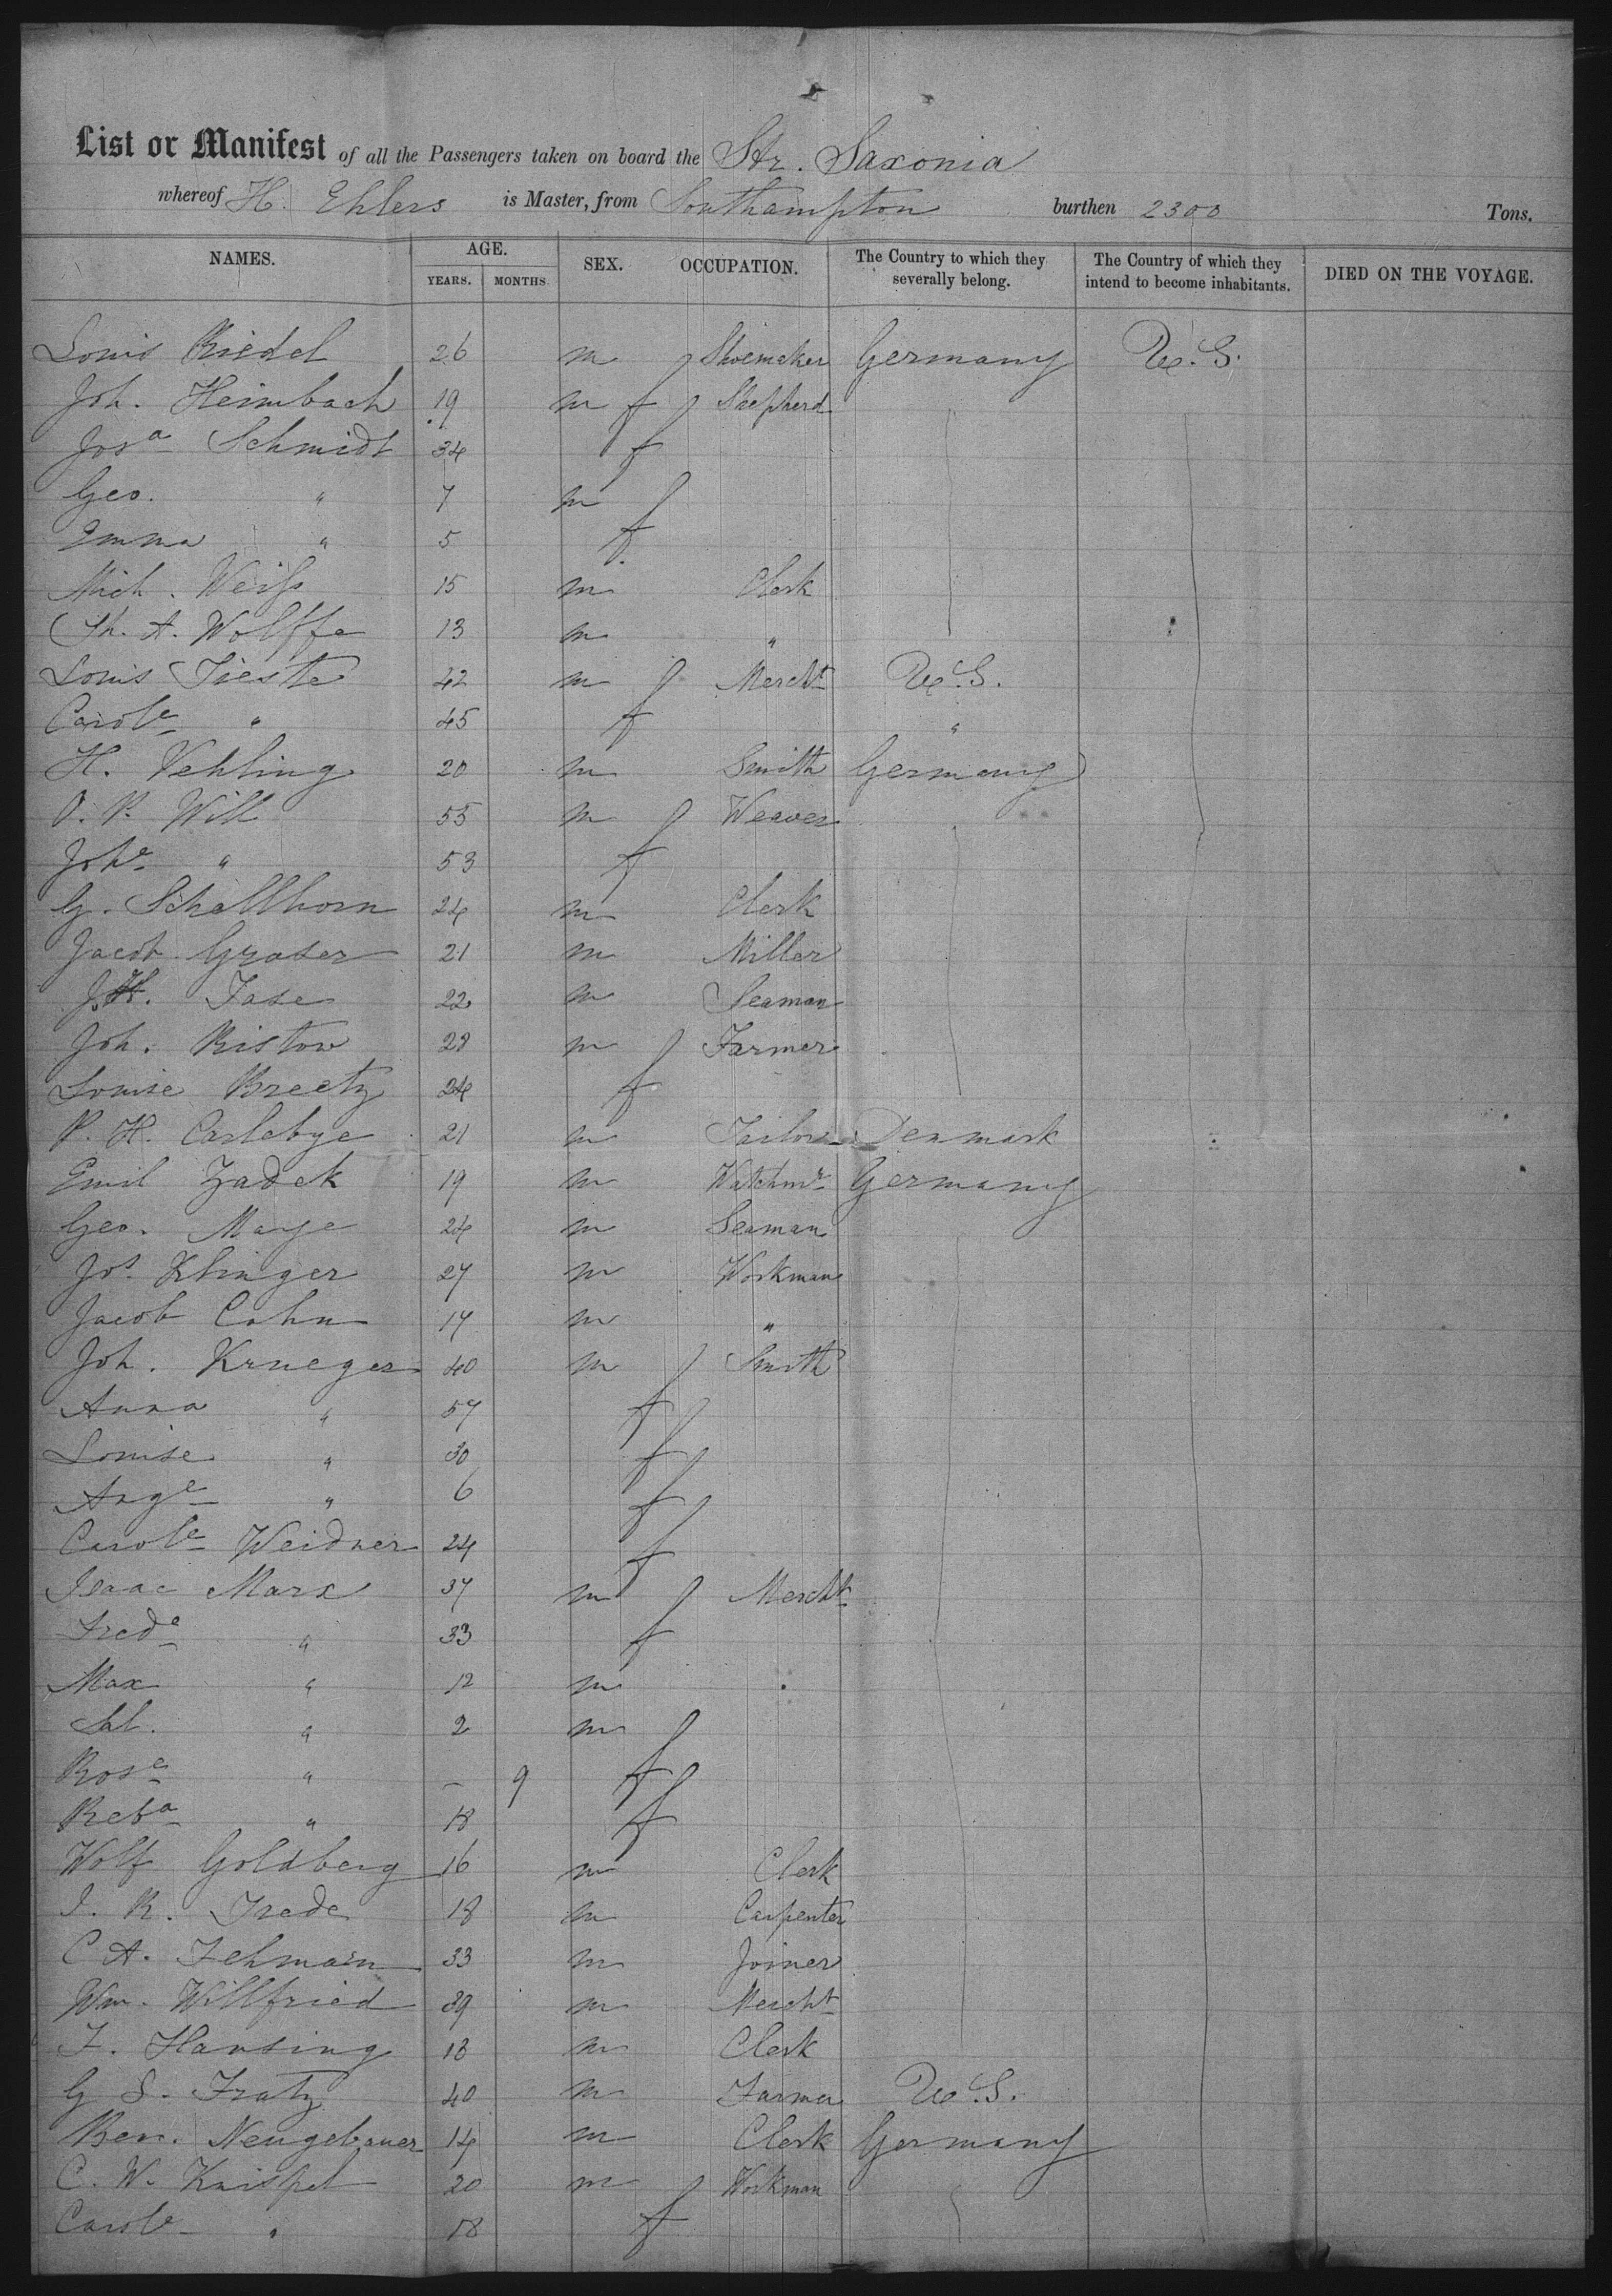 List or Manifest of all the Passengers taken on board the Str. Saxonia
whereof H. Ehlers is Master, from Southampton burthen 2300 Tons.
NAMES. AGE. YEARS. MONTHS SEX. OCCUPATION. The Country to which they severally belong. The Country of which they intend to become inhabitants. DIED ON THE VOYAGE.
Louis Riedel 26 m Shoemaker Germany U.S.
Joh. Heimbach 19 m f Shepherd
Josa Schmidt 34 f
Geo. " 7 m
Emma " 5 f
Mich. Weiss 15 m Clerk
Th. A. Wolffe 13 m "
Louis Tieste 42 m Mercht U.S.
Carole " 45 f "
H. Vehling 20 m Smith Germany
P. Will 55 m Weaver
Johe " 53 f
G. Schallhorn 24 m Clerk
Jacob Graser 21 m Miller
J. Tase 22 m Seaman
Joh. Ristow 28 m Farmer
Louise Breetz 24 f
P. H. Carlebye 21 m Tailor Denmark
Emil Zadek 19 m Watchmr Germany
Geo. Maye 24 m Seaman
Jos. Klinger 27 m Workman
Jacob Cohn 17 m "
Joh. Krueger 40 m Smith
Anna " 57 f
Louise " 30 f
Auge " 6 f
Carole Weidner 24 f
Isaac Marx 37 m Mercht
Freda " 33 f
Max " 12 m
Sal. " 2 m
Rose " – 9 f
Reba " 18 f
Wolf Goldberg 16 m Clerk
J. R. Trede 18 m Carpenter
C. A. Lehmann 33 m Joiner
Wm. Willfried 39 m Mercht
F. Hansing 18 m Clerk
G. S. Fratz 40 m Farmer U.S.
Ben. Neugebauer 14 m Clerk Germany
C. W. Knispel 20 m Workman
Carole " 18 f